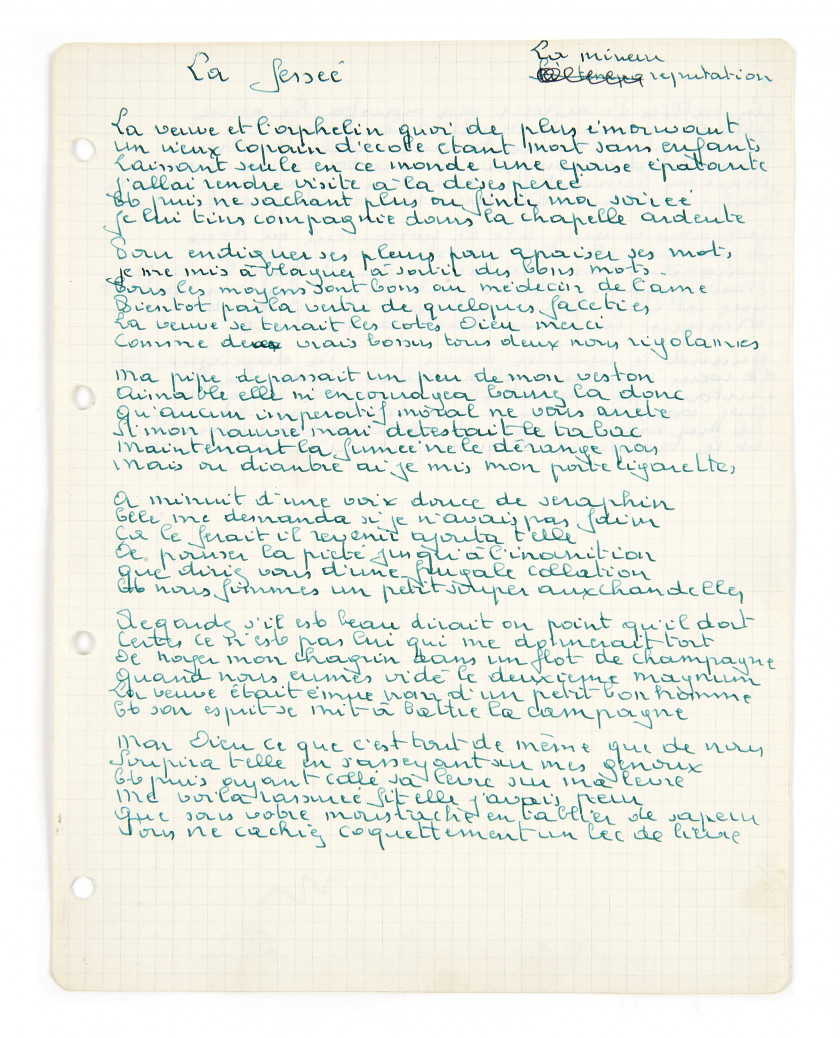 La fessée
La mineur
reputation
La veuve et l'orphelin quoi de plus émouvant
un vieux copain d'ecole etant mort sans enfants
Laissant seule en ce monde une epouse épatante
J'allai rendre visite à la désesperée
Et puis ne sachant plus ou finir ma soirée
Je lui tins compagnie dans la chapelle ardente
Pour endiguer ses pleurs pour apaiser ses mots
je me mis à blaguer à sortir des bons mots
Tous les moyens sont bons au médecin de l'ame
Bientot par la vertu de quelques faceties
La veuve se tenait les cotes Dieu merci
Comme de vrais bossus tous deux nous rigolames
Ma pipe depassait un peu de mon veston
Aimable elle m'encouragea bourrez la donc
Qu'aucun imperatif moral ne vous arrete
Si mon pauvre mari détestait le tabac
Maintenant la fumée ne le dérange pas
Mais ou diantre ai-je mis mon porte cigarettes
A minuit d'une voix douce de seraphin
Elle me demanda si je n'avais pas faim
Ca le ferait il revenir ajouta t'elle
De pousser la pieté jusqu'à l'inanition
que diriez vous d'une frugale collation
Et nous fimes un petit souper aux chandelles
Regardez s'il est beau dirait on point qu'il dort
Certes ce n'est pas lui qui me donnerait tort
De noyer mon chagrin dans un flot de champagne
Quand nous eumes vidé le deuxieme magnum
La veuve était émue nom d'un petit bonhomme
Et son esprit se mit à battre la campagne
Mon Dieu ce que c'est tout de même que de nous
Soupira t'elle en s'asseyant sur mes genoux
Et puis ayant collé sa levre sur ma levre
Me voilà rassurée fit elle j'avais peur
Que sous votre moustache en tablier de sapeur
Vous ne cachiez coquettement un bec de lievre